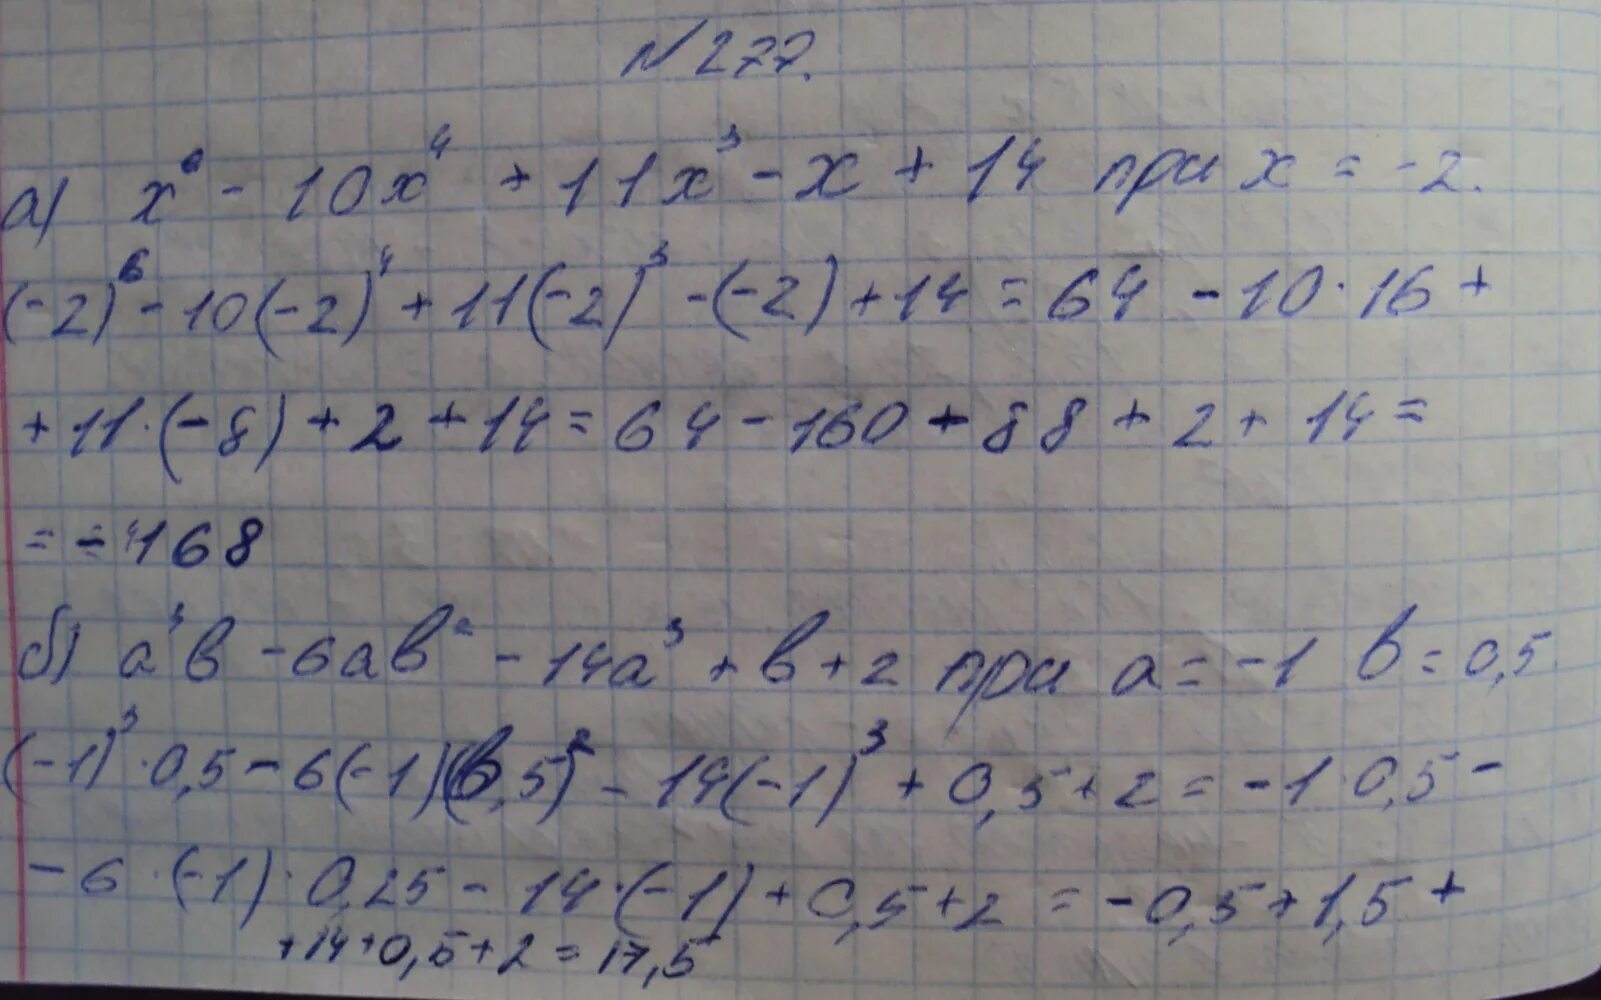 №277.
а) x⁶ - 10x⁴ + 11x³ - x + 14 при x = -2.
(-2)⁶ - 10(-2)⁴ + 11(-2)³ - (-2) + 14 = 64 - 10·16 +
+ 11·(-8) + 2 + 14 = 64 - 160 - 88 + 2 + 14 =
= -168
б) a³b - 6ab² - 14a³ + b + 2 при a = -1 b = 0,5.
(-1)³·0,5 - 6(-1)(0,5)² - 14(-1)³ + 0,5 + 2 = -1·0,5 -
- 6·(-1)·0,25 - 14·(-1) + 0,5 + 2 = -0,5 + 1,5 +
+ 14 + 0,5 + 2 = 17,5